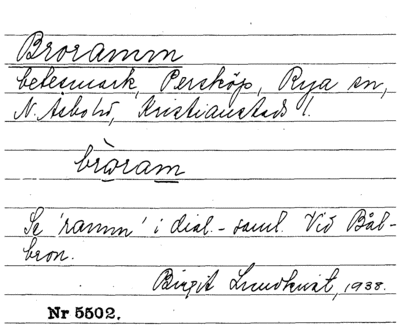 Broramm
betesmark, Perstöp, Rya sn,
N. Åsbo hd, Kristianstads l.
brò̲ram̲
Se 'ramm' i dial.-saml. Vid Bål-
bron.
Birgit Lundkvist, 1938.
Nr 5502.